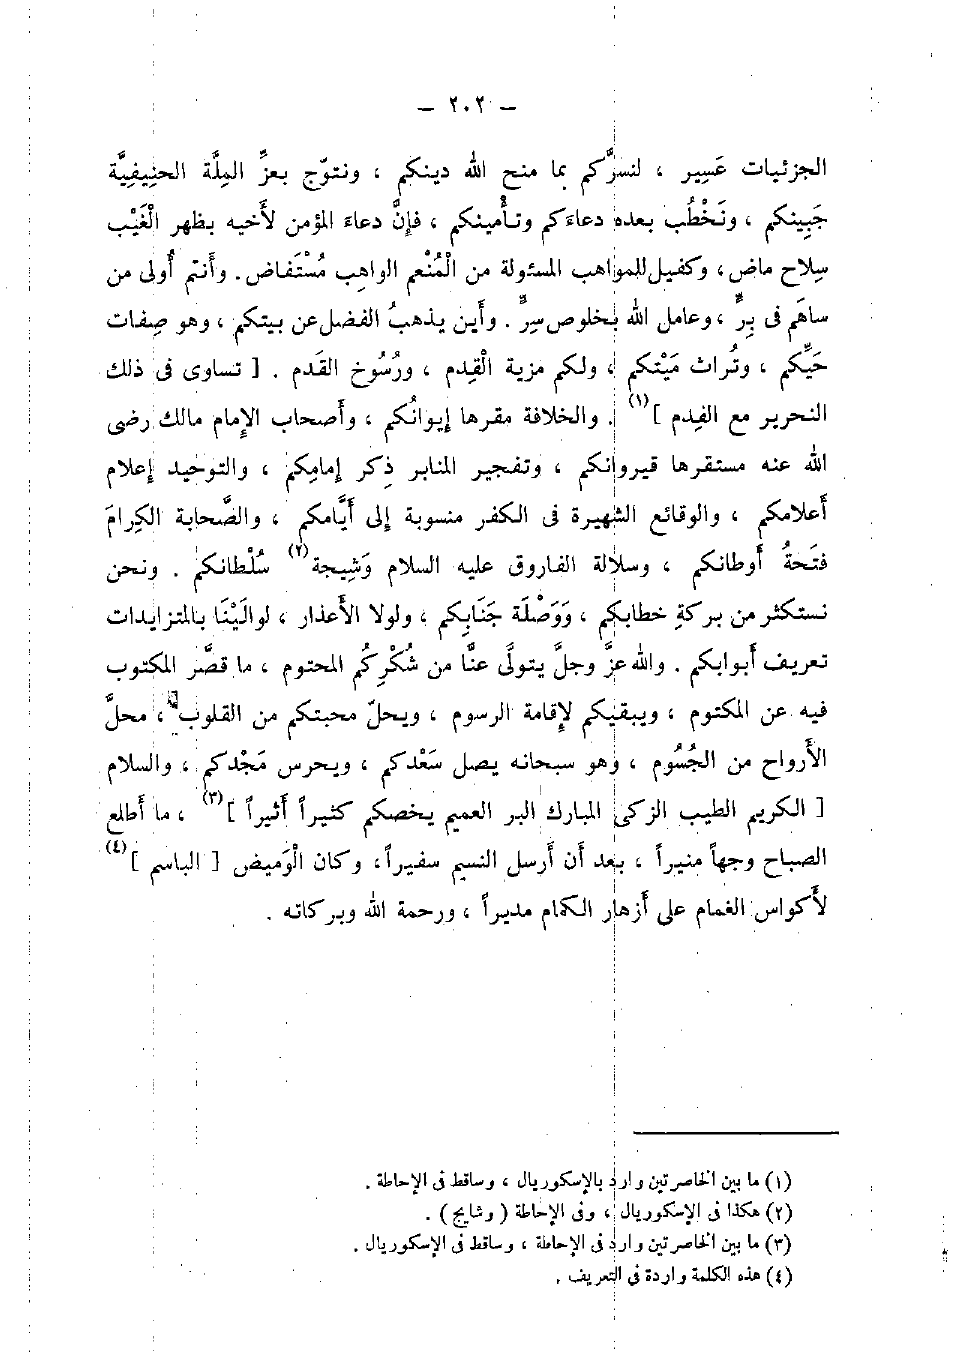 — ٢٠٢ —
الجزئيات عَسِير ، لنسرَّكم بما منح الله دينكم ، ونتوّج بعزِّ المِلَّة الحنِيفِيَّة
جَبِينكم ، ونَخْطُب بعده دعاءَكم وتأْمينكم ، فإِنَّ دعاءَ المؤمن لأَخيه بظهر الْغَيْب
سِلاح ماض ، وكفيل للمواهب المسئولة من الْمُنْعم الواهِب مُسْتَفاض . وأَنتم أُولى من
ساهَم فى بِرٍّ ، وعامل الله بخلوص سِرٍّ . وأَين يذهبُ الفضل عن بيتكم ، وهو صِفات
حَيِّكم ، وتُراث مَيْتكم ، ولكم مزية الْقِدم ، ورُسُوخ القَدم . [ تساوى فى ذلك
التحرير مع الفِدم ](١) . والخلافة مقرها إِيوانُكم ، وأَصحاب الإِمام مالك رضى
الله عنه مستقرها قيروانكم ، وتفجير المنابر ذِكر إِمامِكم ، والتوحيد إِعلام
أَعلامكم ، والوقائع الشهيرة فى الكفر منسوبة إِلى أَيَّامكم ، والصَّحابة الكِرامَ
فتَحةُ أَوطانكم ، وسلالة الفاروق عليه السلام وَشِيجة(٢) سُلْطانكم . ونحن
نستكثر من بركةِ خطابكم ، وَوَصْلَة جَنَابِكم ، ولولا الأَعذار ، لوالَيْنَا بالمتزايدات
تعريف أَبوابكم . والله عزَّ وجلَّ يتولَّى عنَّا من شُكْرِكُم المحتوم ، ما قصَّر المكتوب
فيه عن المكتوم ، ويبقيكم لإِقامة الرسوم ، ويحلّ محبتكم من القلوب ، محلَّ
الأَرواح من الجُسُوم ، وهو سبحانه يصل سَعْدكم ، ويحرس مَجْدكم ، والسلام
[ الكريم الطيب الزكى المبارك البر العميم يخصكم كثيراً أَثيراً ](٣) ، ما أَطلع
الصباح وجهاً منيراً ، بعد أَن أَرسل النسيم سفيراً ، وكان الْوَميض [ الباسم ](٤)
لأَكواس الغمام على أَزهار الكمام مديراً ، ورحمة الله وبركاته .
(١) ما بين الخاصرتين وارد بالإسكوريال ، وساقط فى الإحاطة .
(٢) هكذا فى الإسكوريال ، وفى الإحاطة ( وشايج ) .
(٣) ما بين الخاصرتين وارد فى الإحاطة ، وساقط فى الإسكوريال .
(٤) هذه الكلمة واردة فى التعريف .